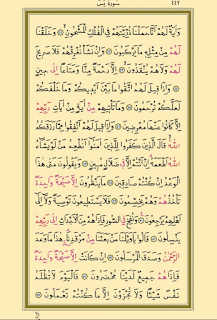 سُورَةُ يٰسٓ ٤٤٢
وَاٰيَةٌ لَهُمْ اَنَّا حَمَلْنَا ذُرِّيَّتَهُمْ فِي الْفُلْكِ الْمَشْحُونِ وَخَلَقْنَا
لَهُمْ مِنْ مِثْلِهِ مَا يَرْكَبُونَ وَاِنْ نَشَأْ نُغْرِقْهُمْ فَلَا صَرِيخَ
لَهُمْ وَلَا هُمْ يُنْقَذُونَ اِلَّا رَحْمَةً مِنَّا وَمَتَاعًا اِلٰى حِينٍ
وَاِذَا قِيلَ لَهُمُ اتَّقُوا مَا بَيْنَ اَيْدِيكُمْ وَمَا خَلْفَكُمْ
لَعَلَّكُمْ تُرْحَمُونَ وَمَا تَأْتِيهِمْ مِنْ اٰيَةٍ مِنْ اٰيَاتِ رَبِّهِمْ
اِلَّا كَانُوا عَنْهَا مُعْرِضِينَ وَاِذَا قِيلَ لَهُمْ اَنْفِقُوا مِمَّا رَزَقَكُمُ
اللّٰهُ قَالَ الَّذِينَ كَفَرُوا لِلَّذِينَ اٰمَنُوا اَنُطْعِمُ مَنْ لَوْ يَشَاءُ
اللّٰهُ اَطْعَمَهُ اِنْ اَنْتُمْ اِلَّا فِي ضَلَالٍ مُبِينٍ وَيَقُولُونَ مَتٰى هٰذَا
الْوَعْدُ اِنْ كُنْتُمْ صَادِقِينَ مَا يَنْظُرُونَ اِلَّا صَيْحَةً وَاحِدَةً
تَأْخُذُهُمْ وَهُمْ يَخِصِّمُونَ فَلَا يَسْتَطِيعُونَ تَوْصِيَةً وَلَا اِلٰى
اَهْلِهِمْ يَرْجِعُونَ وَنُفِخَ فِي الصُّورِ فَاِذَا هُمْ مِنَ الْاَجْدَاثِ اِلٰى رَبِّهِمْ
يَنْسِلُونَ قَالُوا يَا وَيْلَنَا مَنْ بَعَثَنَا مِنْ مَرْقَدِنَا هٰذَا مَا وَعَدَ
الرَّحْمٰنُ وَصَدَقَ الْمُرْسَلُونَ اِنْ كَانَتْ اِلَّا صَيْحَةً وَاحِدَةً
فَاِذَا هُمْ جَمِيعٌ لَدَيْنَا مُحْضَرُونَ فَالْيَوْمَ لَا تُظْلَمُ
نَفْسٌ شَيْئًا وَلَا تُجْزَوْنَ اِلَّا مَا كُنْتُمْ تَعْمَلُونَ